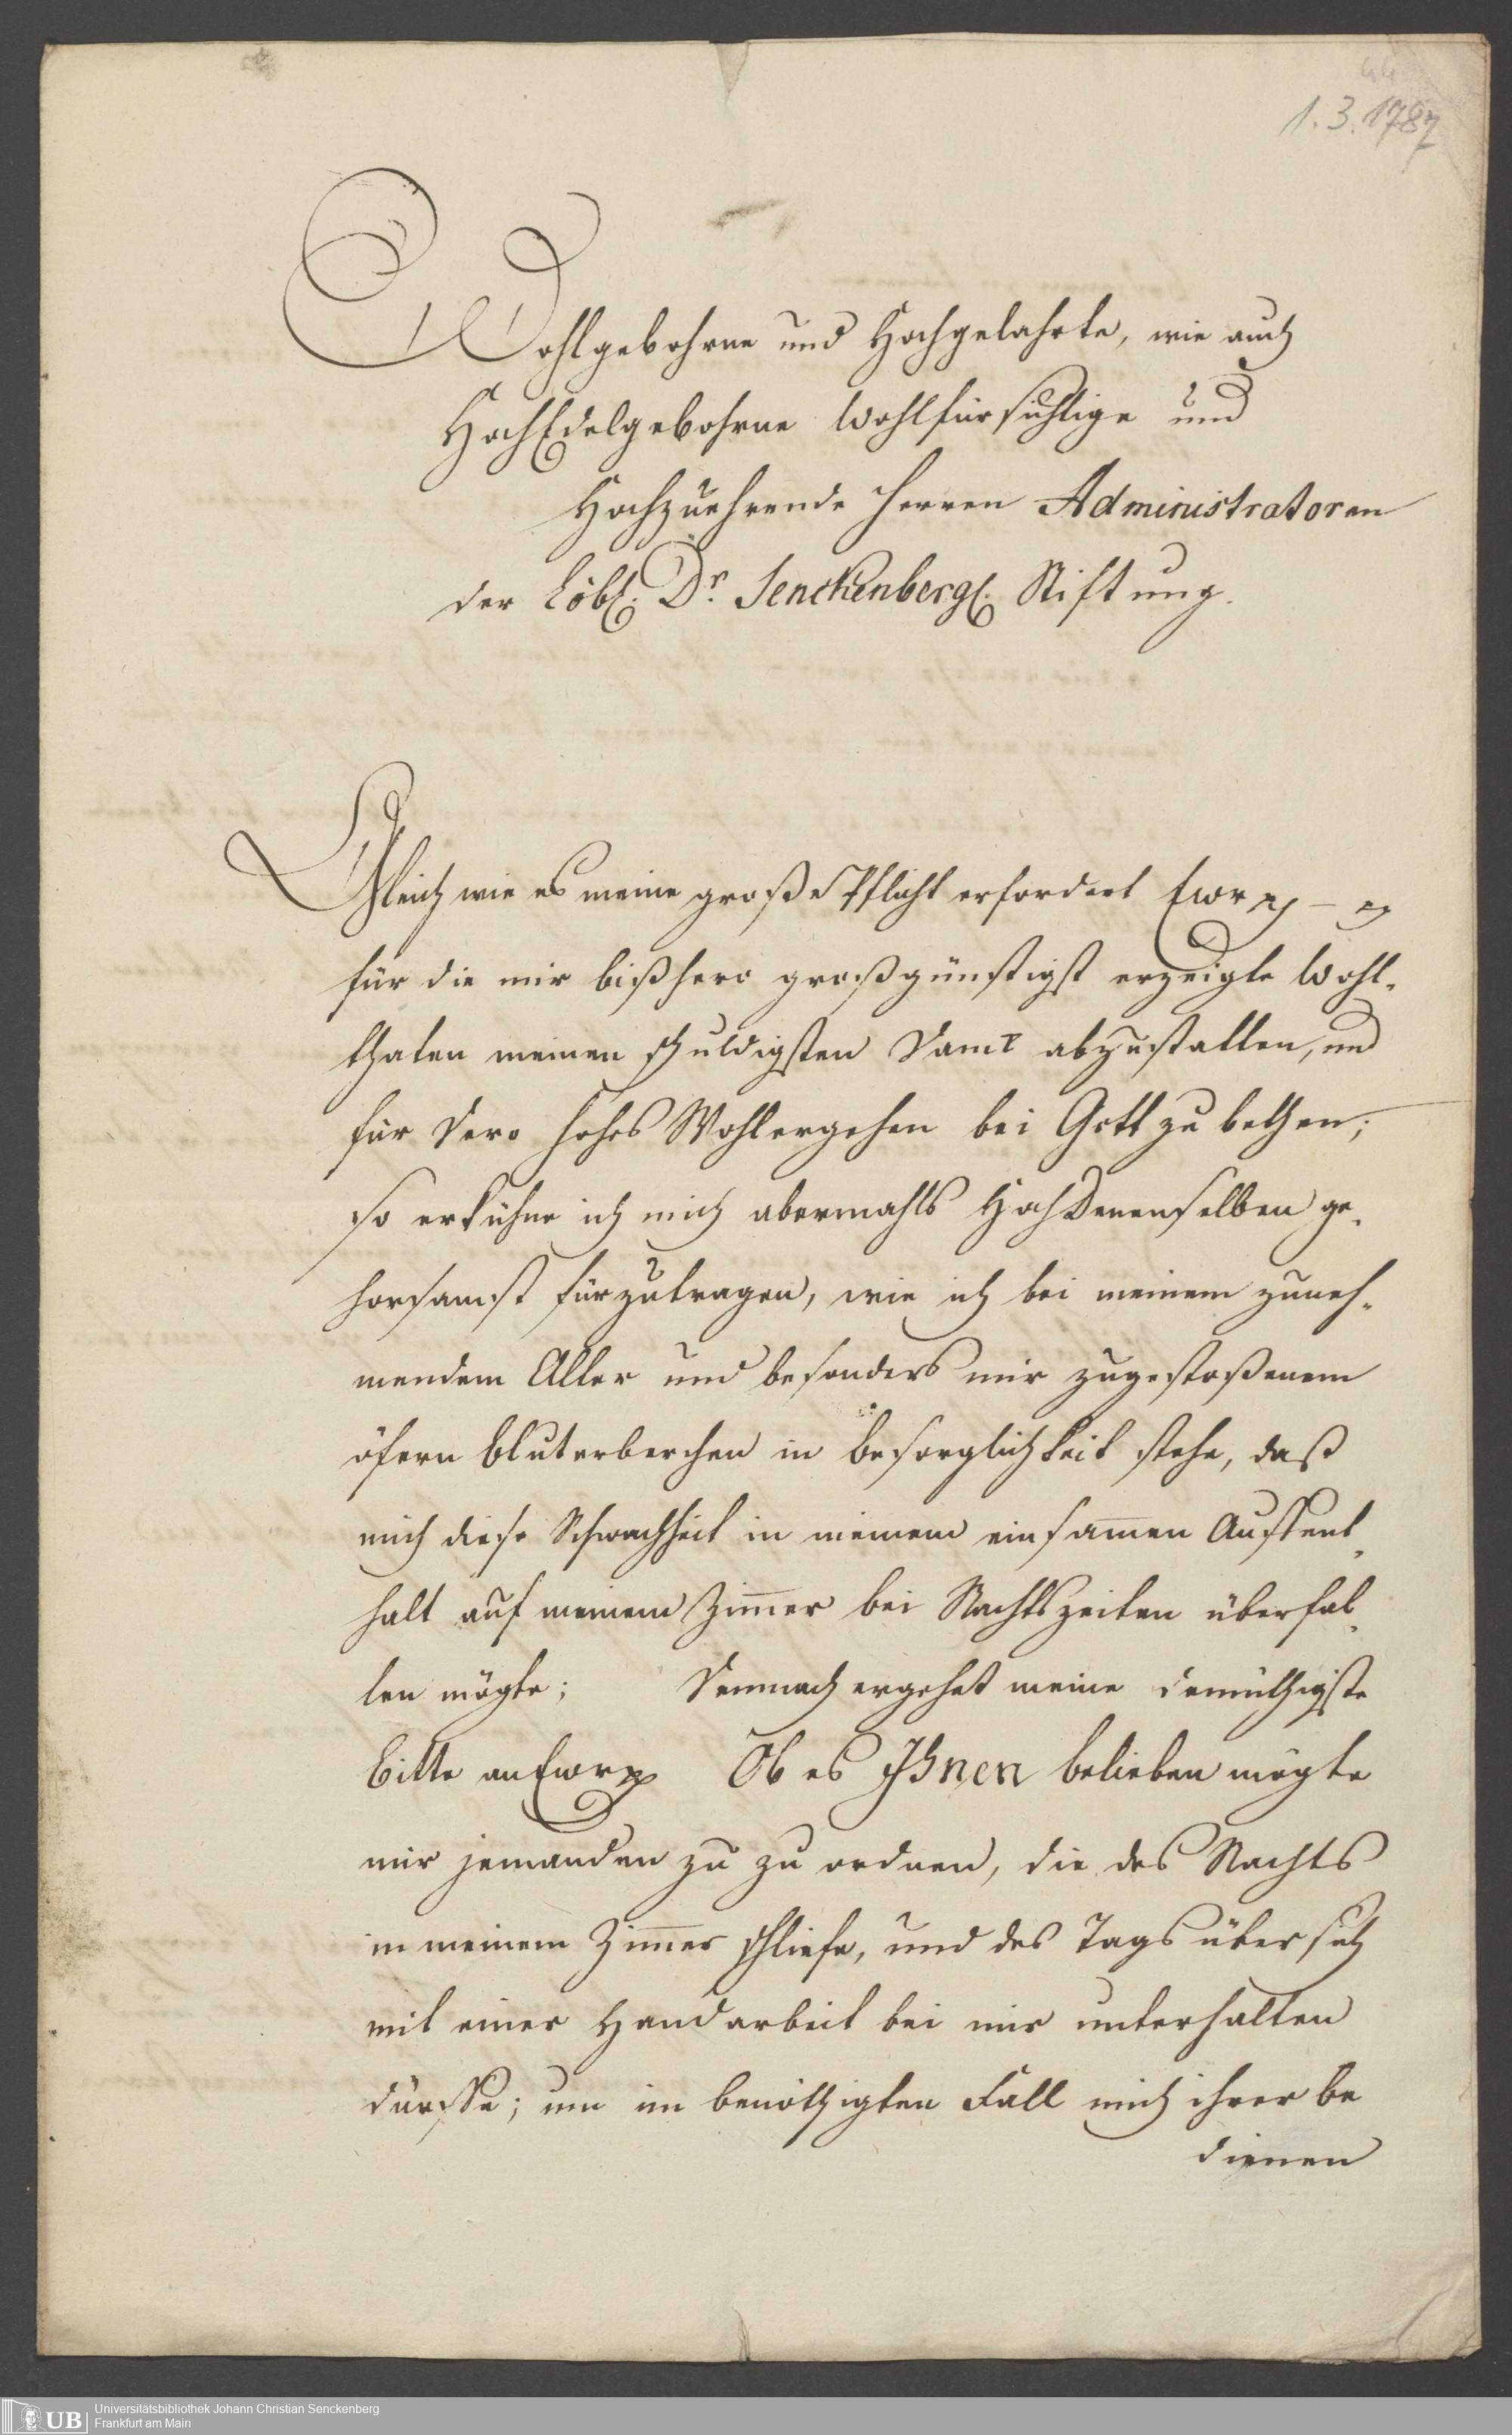 1.3.1787
Wohlgebohrne und Hochgelahrte, wie auch
HochEdelgebohrne Wohlfürsichtige und
Hochzuehrende Herren Administratoren
der Löbl. Dr. Senckenbergl. Stiftung.
Gleich wie es meine große Pflicht erfordert Ewr
für die mir bißhero großgünstigst erzeigte Wohl-
thaten meinen schuldigsten Danck abzustatten, und
für Dero hohes Wohlergehen bei Gott zu bethen;
so erkühne ich mich abermahls HochDenenselben ge-
horsamst fürzutragen, wie ich bei meinem zuneh-
mendem Alter und besonders mir zugestoßenem
öfern Bluterbrechen in Besorglichkeit stehe, daß
mich diese Schwachheit in meinem einsamen Auffent-
halt auf meinem Zimmer bei Nachtszeiten überfal-
len mögte; Demnach ergehet meine demüthigste
Bitte an Ewr Ob es Ihnen belieben mögte
mir jemanden zu zu ordnen, die des Nachts
in meinem Zimmer schliefe, und des Tags über sich
mit einer Handarbeit bei mir unterhalten
dürffte; um im benöthigten Fall mich ihrer be
dienen
UB
Universitätsbibliothek Johann Christian Senckenberg
Frankfurt am Main